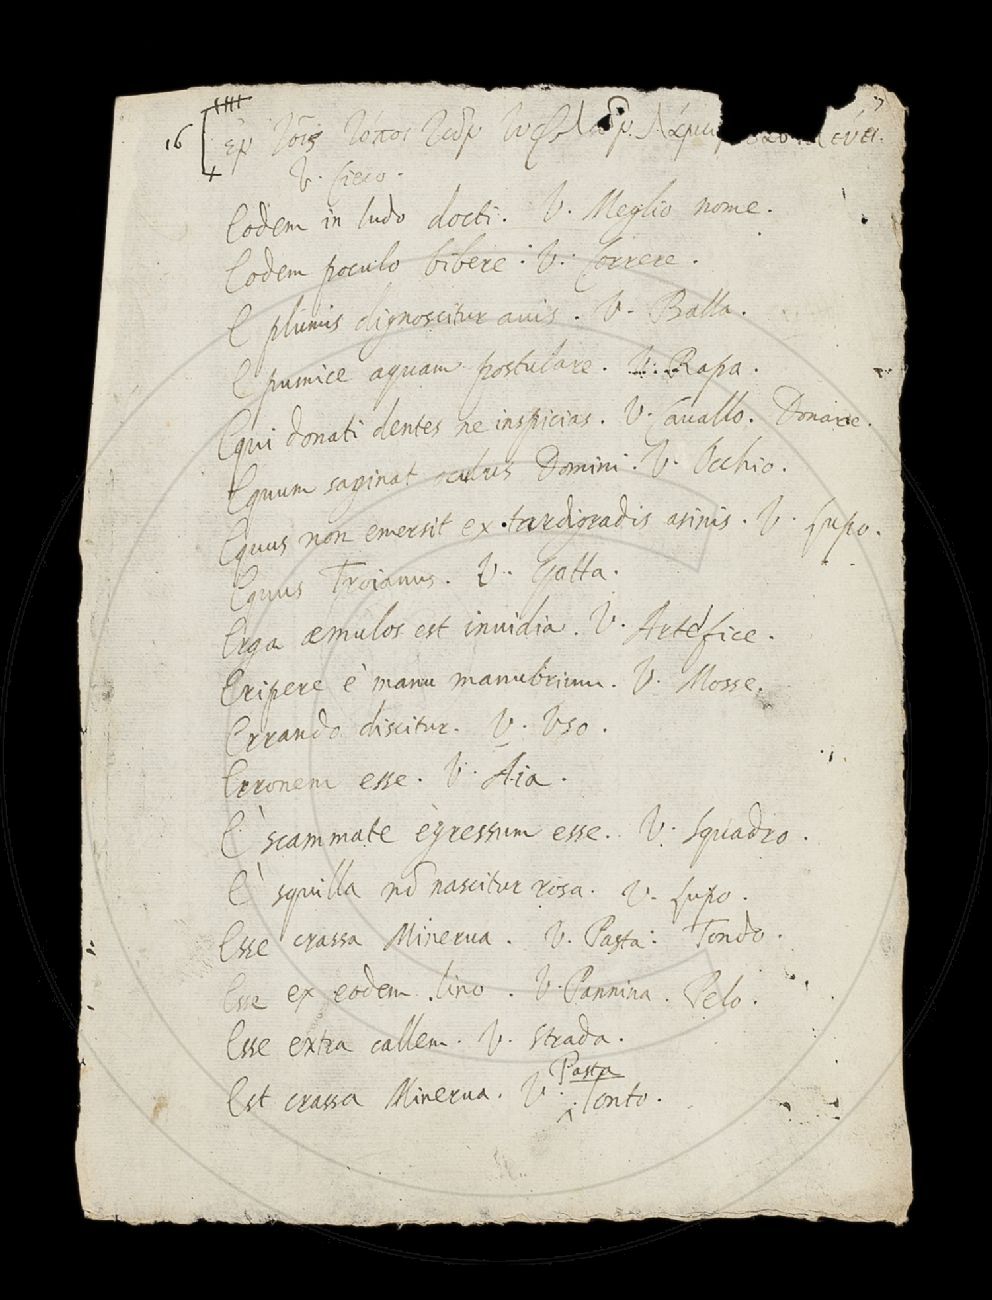 16 ἐν τοῖς τόπος τῶν
V. Cieco.
Eodem in ludo docti. V. Meglio nome.
Eodem poculo bibere. V. Correre.
E plumis dignoscitur avis. V. Balla.
E pumice aquam postulare. V. Rapa.
Equi donati dentes ne inspicias. V. Cauallo. Donare.
Equum saginat oculus Domini. V. Occhio.
Equus non emersit ex tardigradis asinis. V. Lupo.
Equus Troianus. V. Gatta.
Erga æmulos est inuidia. V. Artefice.
Eripere è manu manubrium. V. Mosse.
Errando discitur. V. Vso.
Erronem esse. V. Aia.
E' scammate egressum esse. V. Squadro.
E' squilla nõ nascitur rosa. V. Lupo.
Esse crassa Minerua. V. Pasta. Tondo.
Esse ex eodem lino. V. Pannina. Pelo.
Esse extra callem. V. Strada.
Pasta
Est crassa Minerua. V. Tonto.